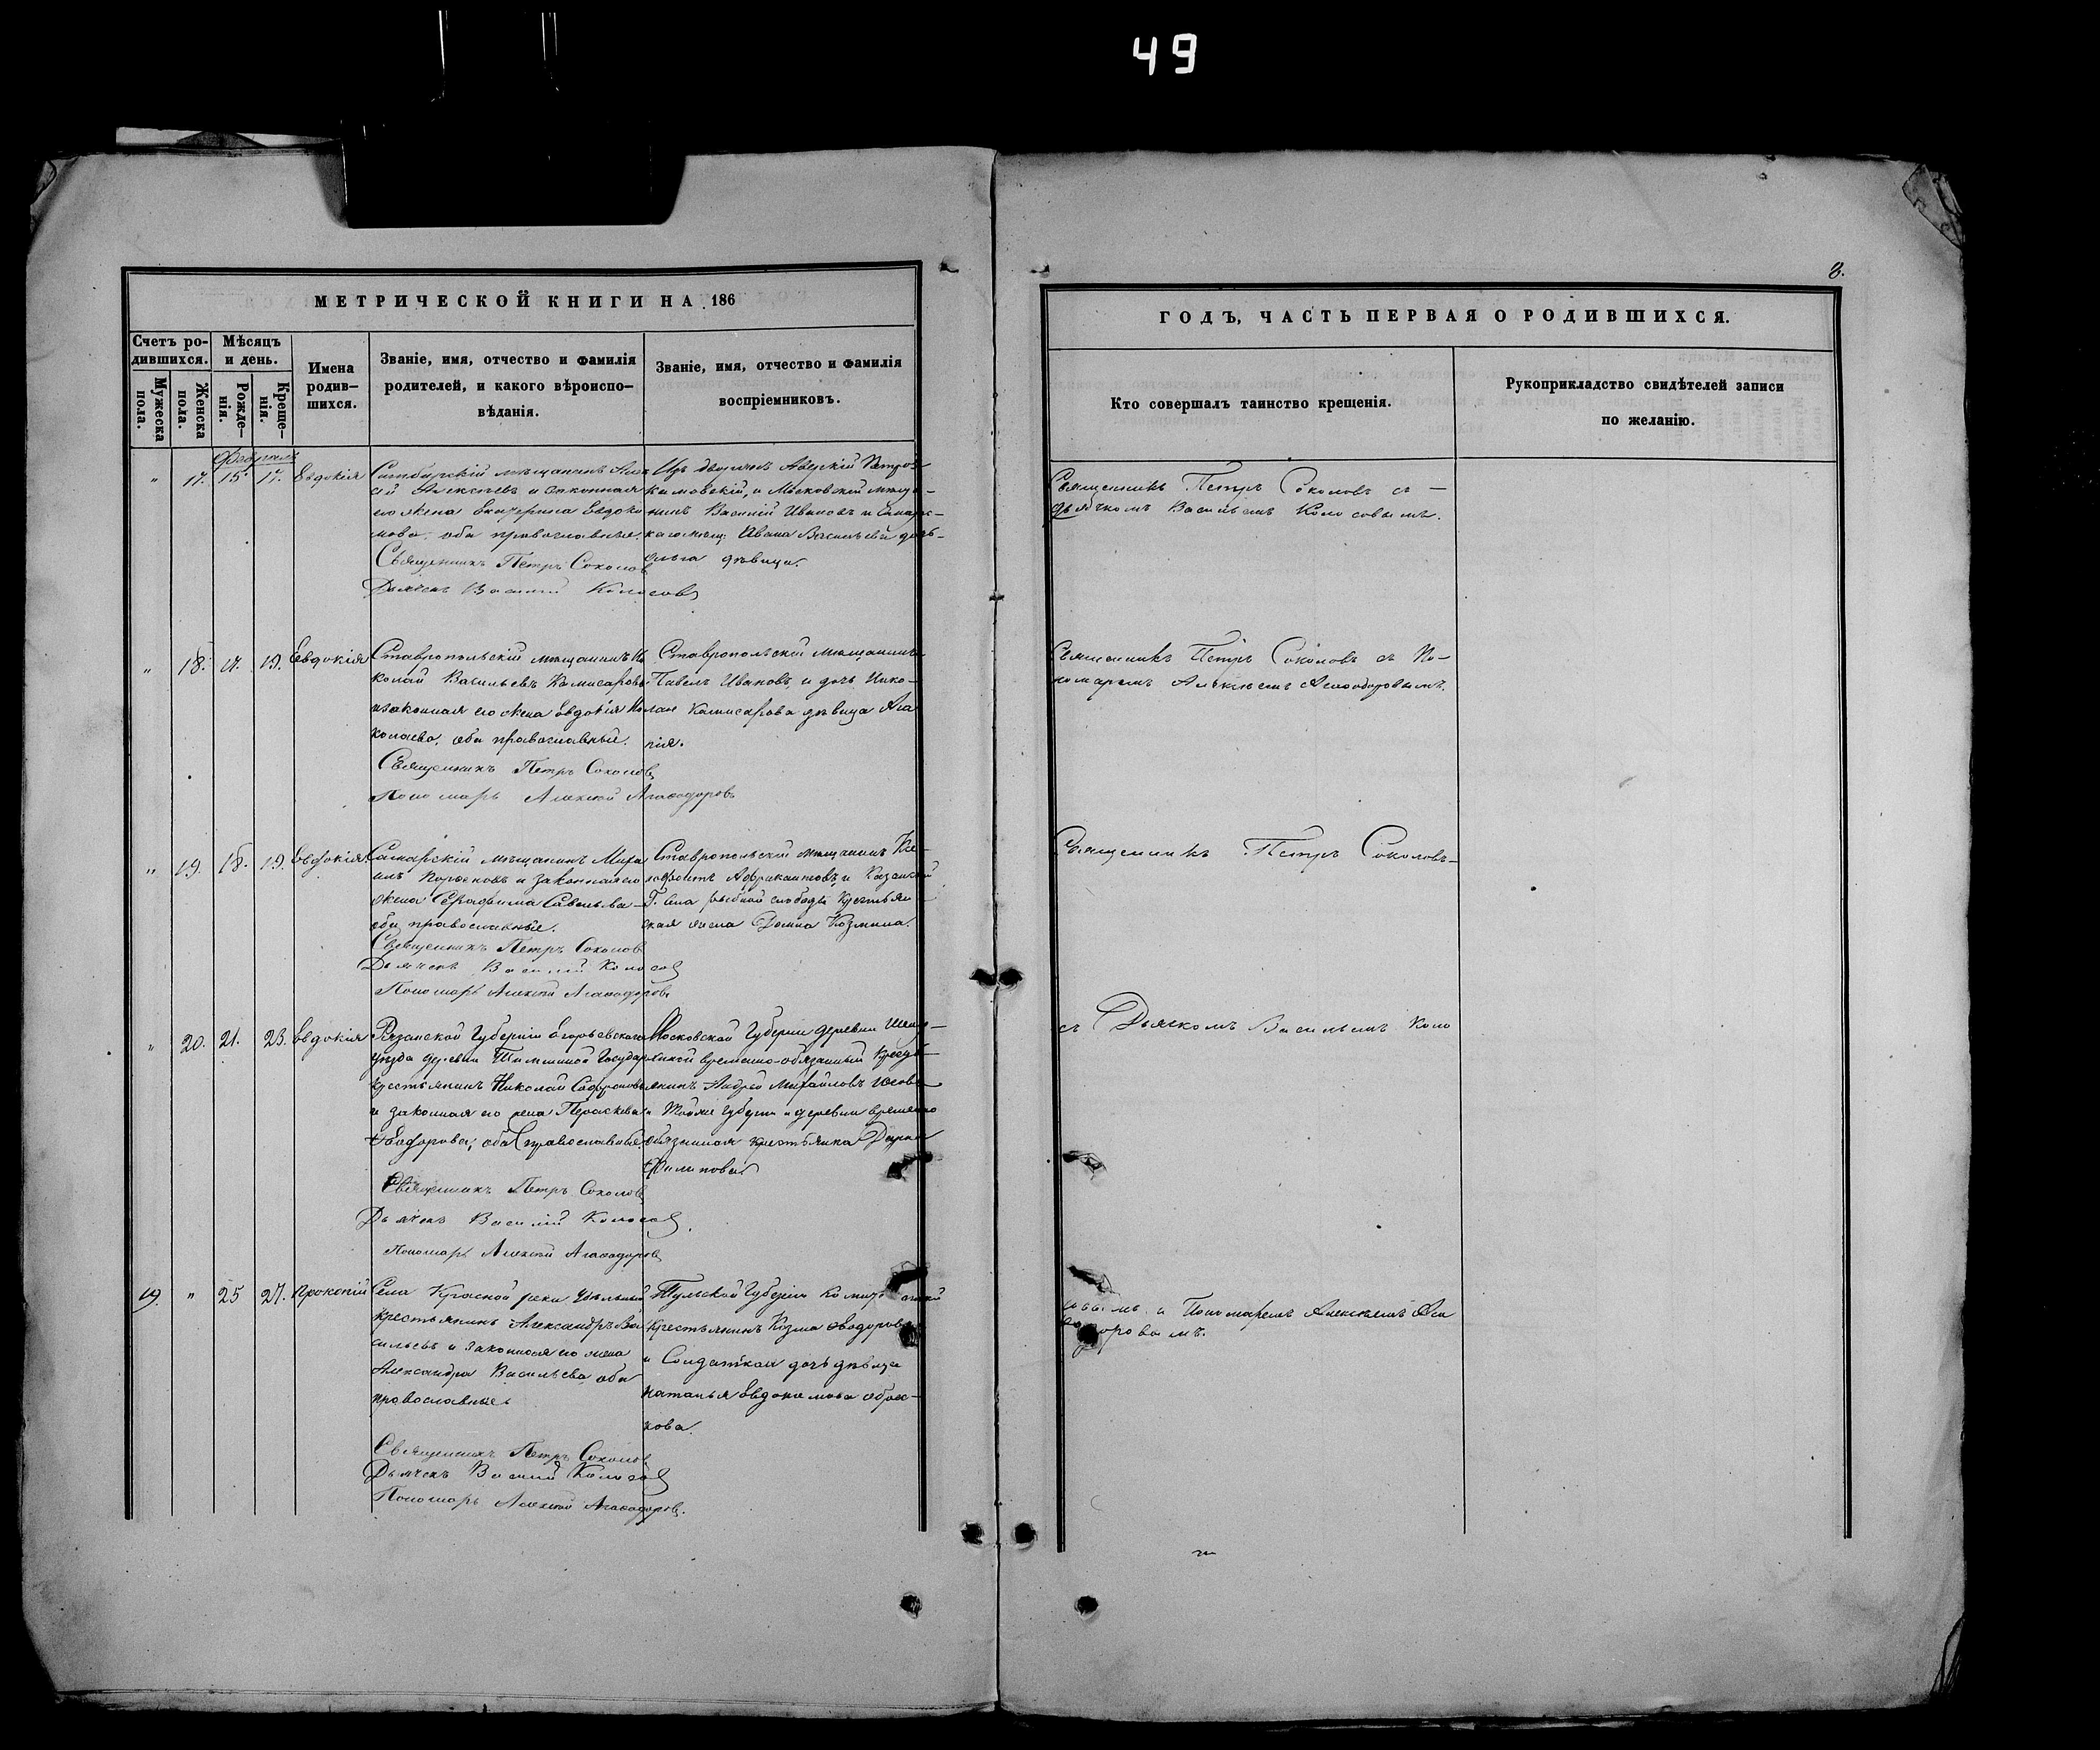 49
8.
МЕТРИЧЕСКОЙ КНИГИ НА 186
ГОДЪ, ЧАСТЬ ПЕРВАЯ О РОДИВШИХСЯ.
Счетъ ро-
дившихся.
Мужеска
пола.
Женска
пола.
Мѣсяцъ
и день.
Рожде-
нія.
Креще-
нія.
Имена
родив-
шихся.
Званіе, имя, отчество и фамилія
родителей, и какого вѣроиспо-
вѣданія.
Званіе, имя, отчество и фамилія
воспріемниковъ.
Кто совершалъ таинство крещенія.
Рукоприкладство свидѣтелей записи
по желанію.
Февраль
" 17. 15 17. Евдокія
Симбирскій мѣщанинъ Але
сѣй Алексѣевъ и законная
его жена Екатерина Евдоки
мова, оба православные.
Священникъ Петръ Соколовъ
Дьячекъ Василій Колосовъ
Изъ дворянъ Петров
и Московскій мѣща-
нинъ Василій Ивановъ и
Ивана Васильева дочь
Ольга дѣвица.
Священникъ Петръ Соколовъ съ
дьячкомъ Васильемъ Колосовымъ.
" 18. 17. 19. Евдокія
Ставропольскій мѣщанинъ Ни
колай Васильевъ Камисаровъ
и законная его жена Евдокія Ни
колаева, оба православные.
Священникъ Петръ Соколовъ
Пономарь Алексѣй Агаѳодоровъ
Ставропольскій мѣщанинъ
Павелъ Ивановъ, и дочь Нико-
лая Камисарова дѣвица Ага
пія.
Священникъ Петръ Соколовъ съ По-
номаремъ Алексѣемъ Агаѳодоровымъ.
" 19. 18. 19. Евдокія
Самарскій мѣщанинъ Миха
илъ и законная его
жена Серафима Савельева
оба православные.
Священникъ Петръ Соколовъ
Дьячекъ Василій Колосовъ
Пономарь Алексѣй Агаѳодоровъ
Ставропольскій мѣщанинъ
Африкантовъ, и Казанской
Г. села рыбной слободы крестьян
ская жена Домна Козмина.
Священникъ Петръ Соколовъ
" 20. 21. 23. Евдокія
Рязанской Губерніи Егорьевскаго
уѣзда деревни Государ
крестьянинъ Николай Софроновъ
и законная его жена Параскева
Ѳеодорова; оба православные.
Священникъ Петръ Соколовъ
Дьячекъ Василій Колосовъ
Пономарь Алексѣй Агаѳодоровъ
Московской Губерніи деревни
временно-обязанный кресть
янинъ Андрей Михайловъ
и Тойже губерніи и деревни временно
обязанная крестьянка Дарья
Филипова
съ Дьячкомъ Васильемъ Коло
19. " 25 27. Прокопій
Села Красной реки удѣльный
крестьянинъ Александръ Ва
сильевъ и законная его жена
Александра Васильева, оба
православные
Священникъ Петръ Соколовъ
Дьячекъ Василій Колосовъ
Пономарь Алексѣй Агаѳодоровъ.
Тульской Губерніи
крестьянинъ Козма Ѳеодоровъ
и Солдатская дочь дѣвица
Наталья Евдокимова
кова.
совымъ, и Пономаремъ Алексѣемъ Ага
ѳодоровымъ.